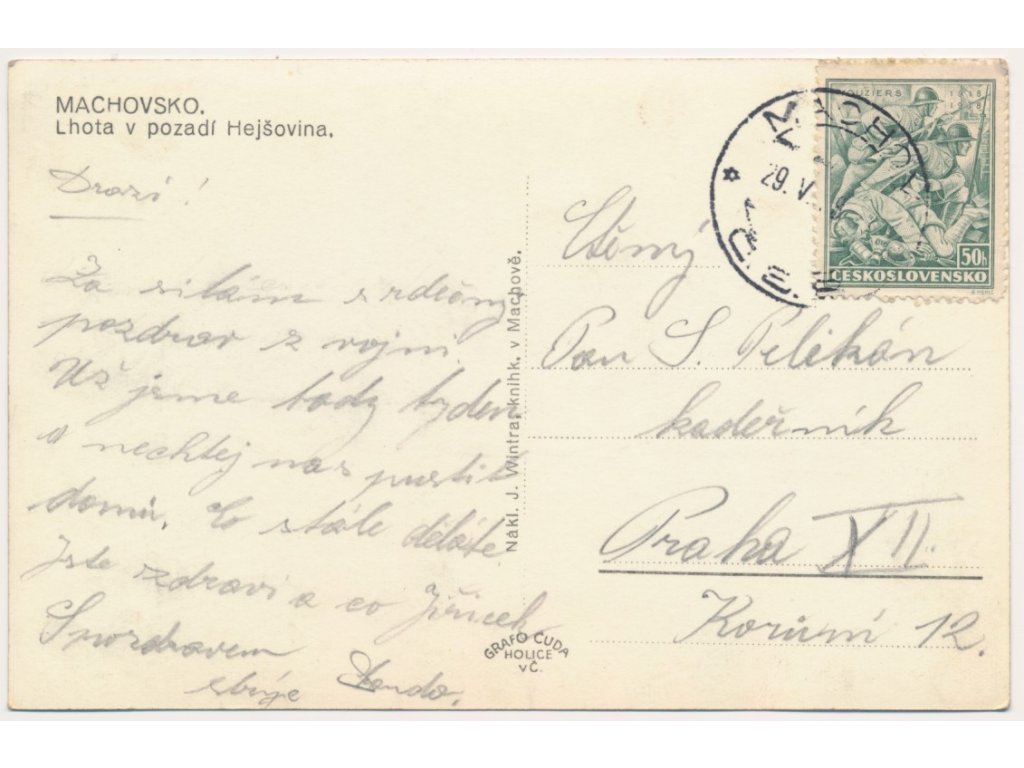 MACHOVSKO.
Lhota v pozadí Hejšovina.
Drazí!
Za silám srdečný
pozdrav z vojni.
Už jsme tady tyden
a nechtěj nas pustit
domů. Co stále děláte
Jste zdraví a co Jiříček
S pozdravem
Nákl. J. Wintra, knihk. v Machově.
GRAFO ČUDA
HOLICE
VČ.
VOUZIERS 1918
1938
50h
ČESKOSLOVENSKO
MACHOV
29. V
Ctěný
Pan S. Pelikán
kadeřník
Praha XII.
Korunní 12.